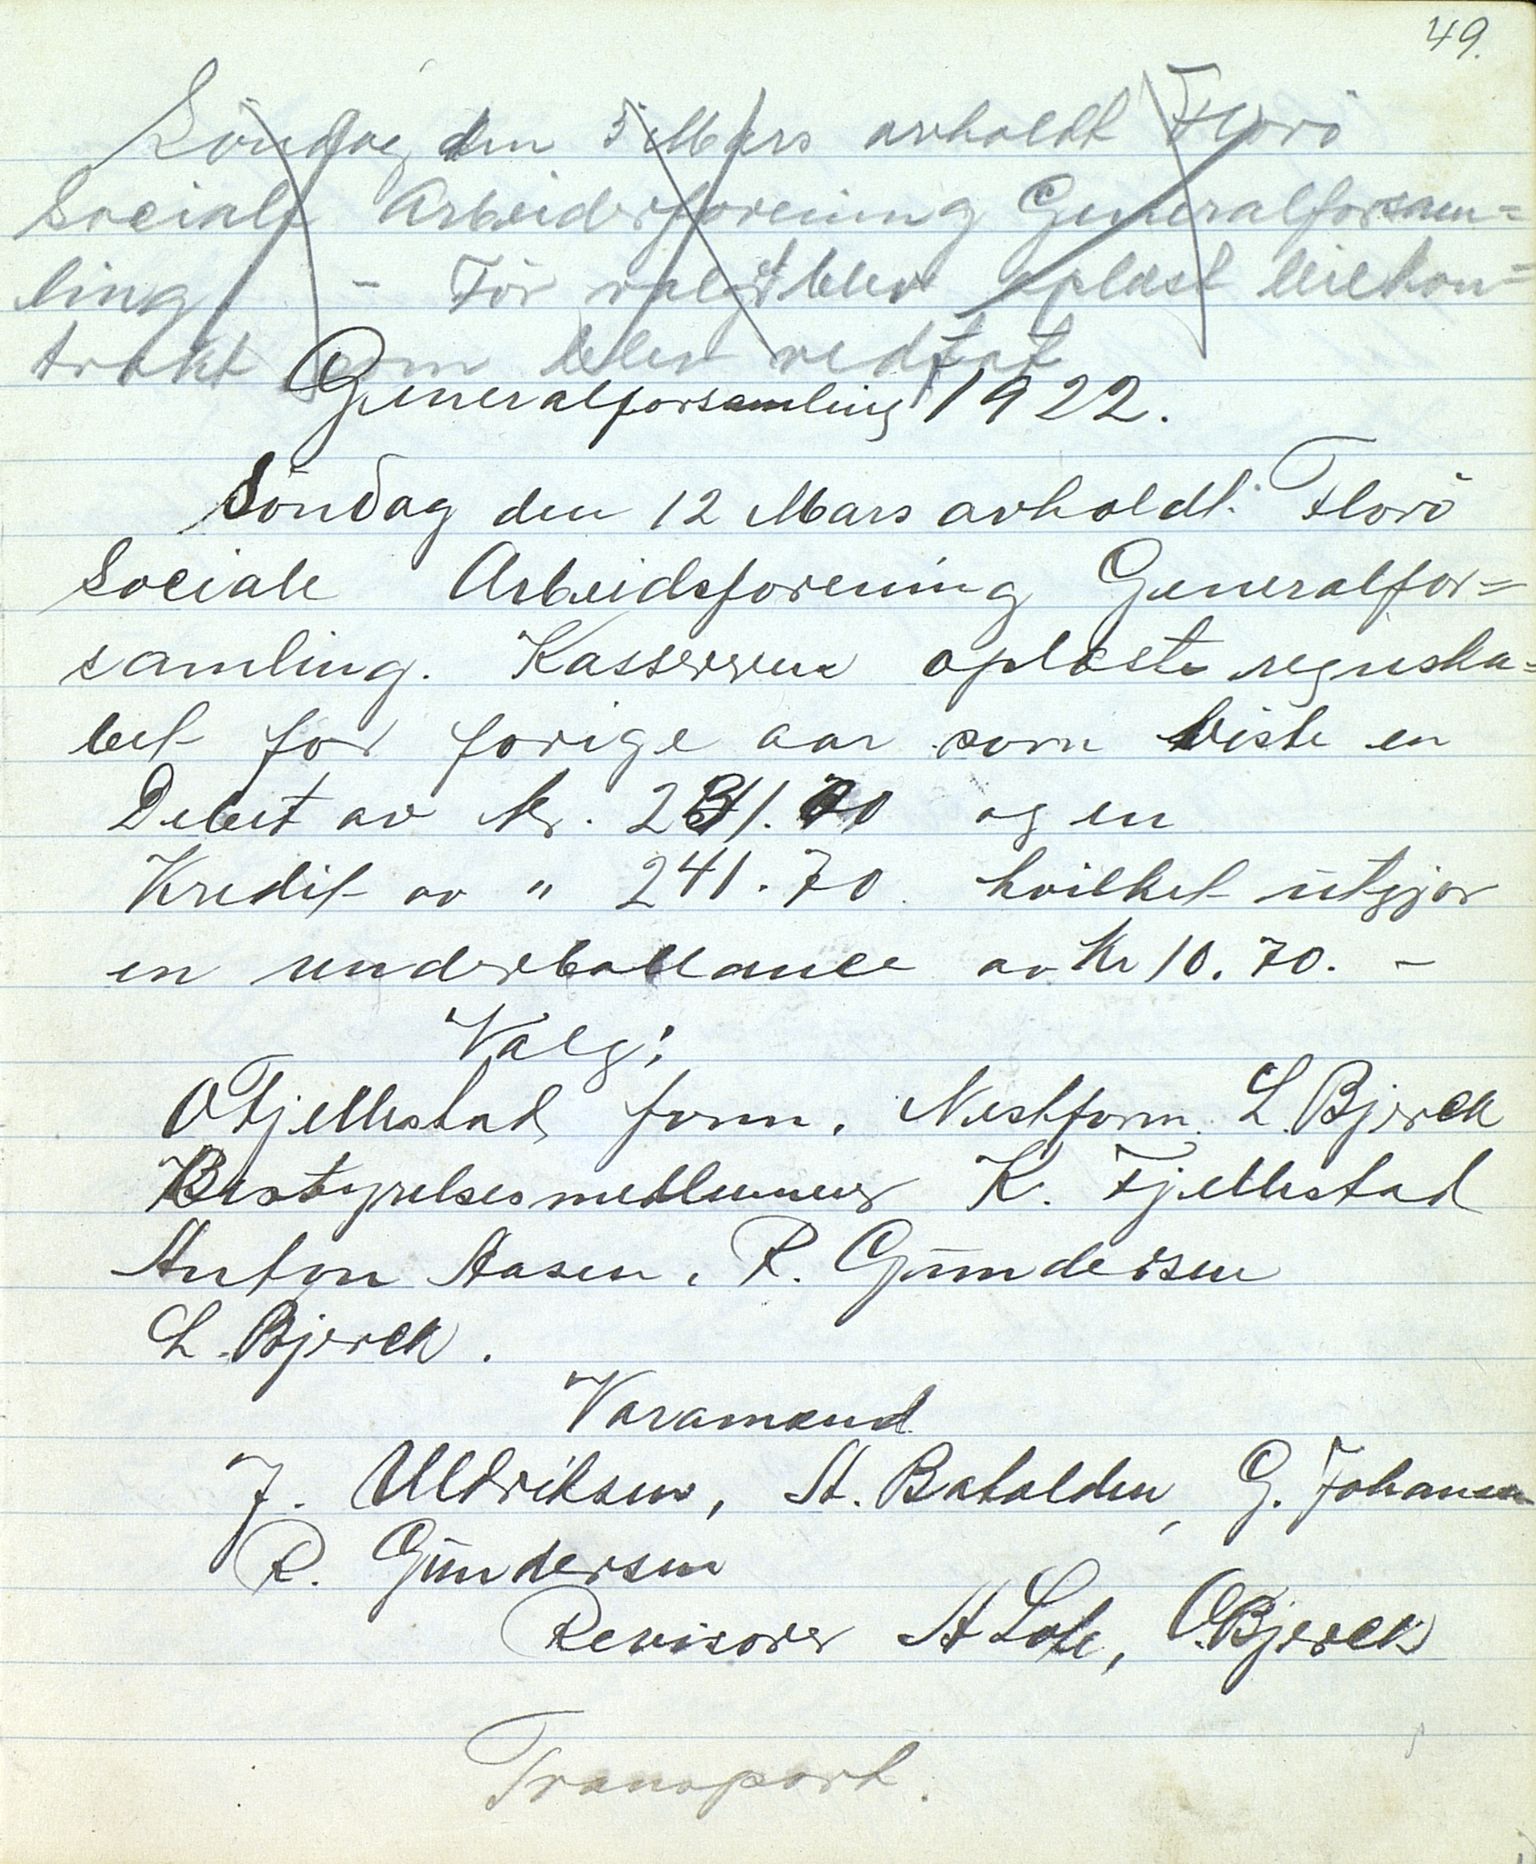 49.
Söndag den 5 Mars avholdt Florö
Sociale Arbeiderforening Generalforsam=
ling. - För valget blev oplæst leiekon=
trakt som blev vedtat
Generalforsamling 1922.
Söndag den 12 Mars avholdt Florö
Sociale Arbeidsforening Generalfor=
samling. Kassereren oplæste regnska=
bet for forige aar som viste en
Debet av kr. 231.00 og en
Kredit av " 241.70 hvilket utgjør
en underballance av Kr 10.70. -
Valg:
O Fjellestad form. Nestform. L. Bjerck
Bestyrelsesmedlemmer K. Fjellestad
Anton Aasen, R. Gundersen
L. Bjerck.
Varamænd
J. Uldriksen, A. Batalden, G. Johansen
R. Gundersen
Revisorer A Lote, O. Bjerck
Transport.